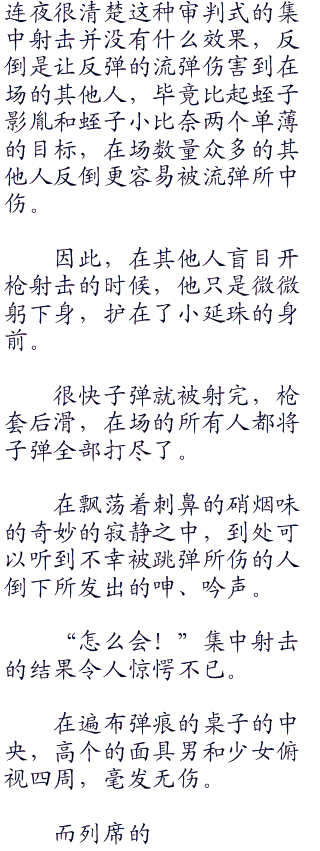 连夜很清楚这种审判式的集
中射击并没有什么效果，反
倒是让反弹的流弹伤害到在
场的其他人，毕竟比起蛭子
影胤和蛭子小比奈两个单薄
的目标，在场数量众多的其
他人反倒更容易被流弹所中
伤。
因此，在其他人盲目开
枪射击的时候，他只是微微
躬下身，护在了小延珠的身
前。
很快子弹就被射完，枪
套后滑，在场的所有人都将
子弹全部打尽了。
在飘荡着刺鼻的硝烟味
的奇妙的寂静之中，到处可
以听到不幸被跳弹所伤的人
倒下所发出的呻、吟声。
“怎么会！”集中射击
的结果令人惊愕不已。
在遍布弹痕的桌子的中
央，高个的面具男和少女俯
视四周，毫发无伤。
而列席的